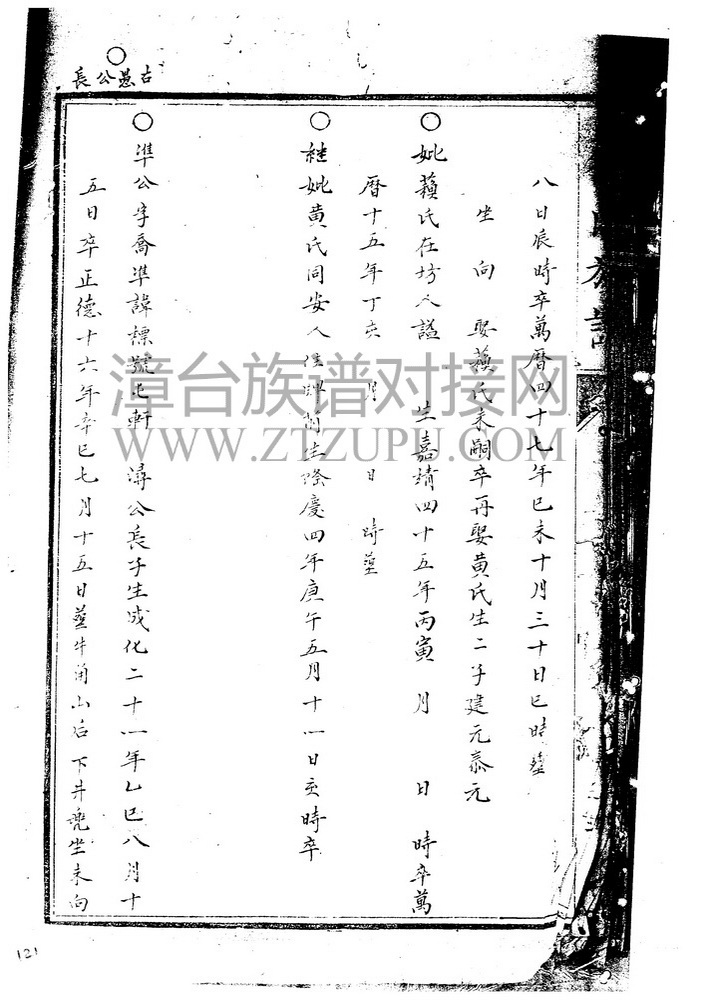 古愚公長
八日辰時卒萬曆四十七年己未十月三十日巳時塟
坐 向 娶蘓氏未嗣卒再娶黄氏生二子建元泰元
妣蘓氏在坊人謚 生嘉靖四十五年丙寅 月 日 時卒萬
曆十五年丁亥 月 日 時塟
継妣黄氏同安人 生隆慶四年庚午五月十一日亥時卒
準公字喬準諱標號 軒 濤公長子生成化二十一年乙巳八月十
五日卒正德十六年辛巳七月十五日塟牛角山后下井 坐未向
族譜
漳台族谱对接网
WWW.ZTZUPU.COM
121